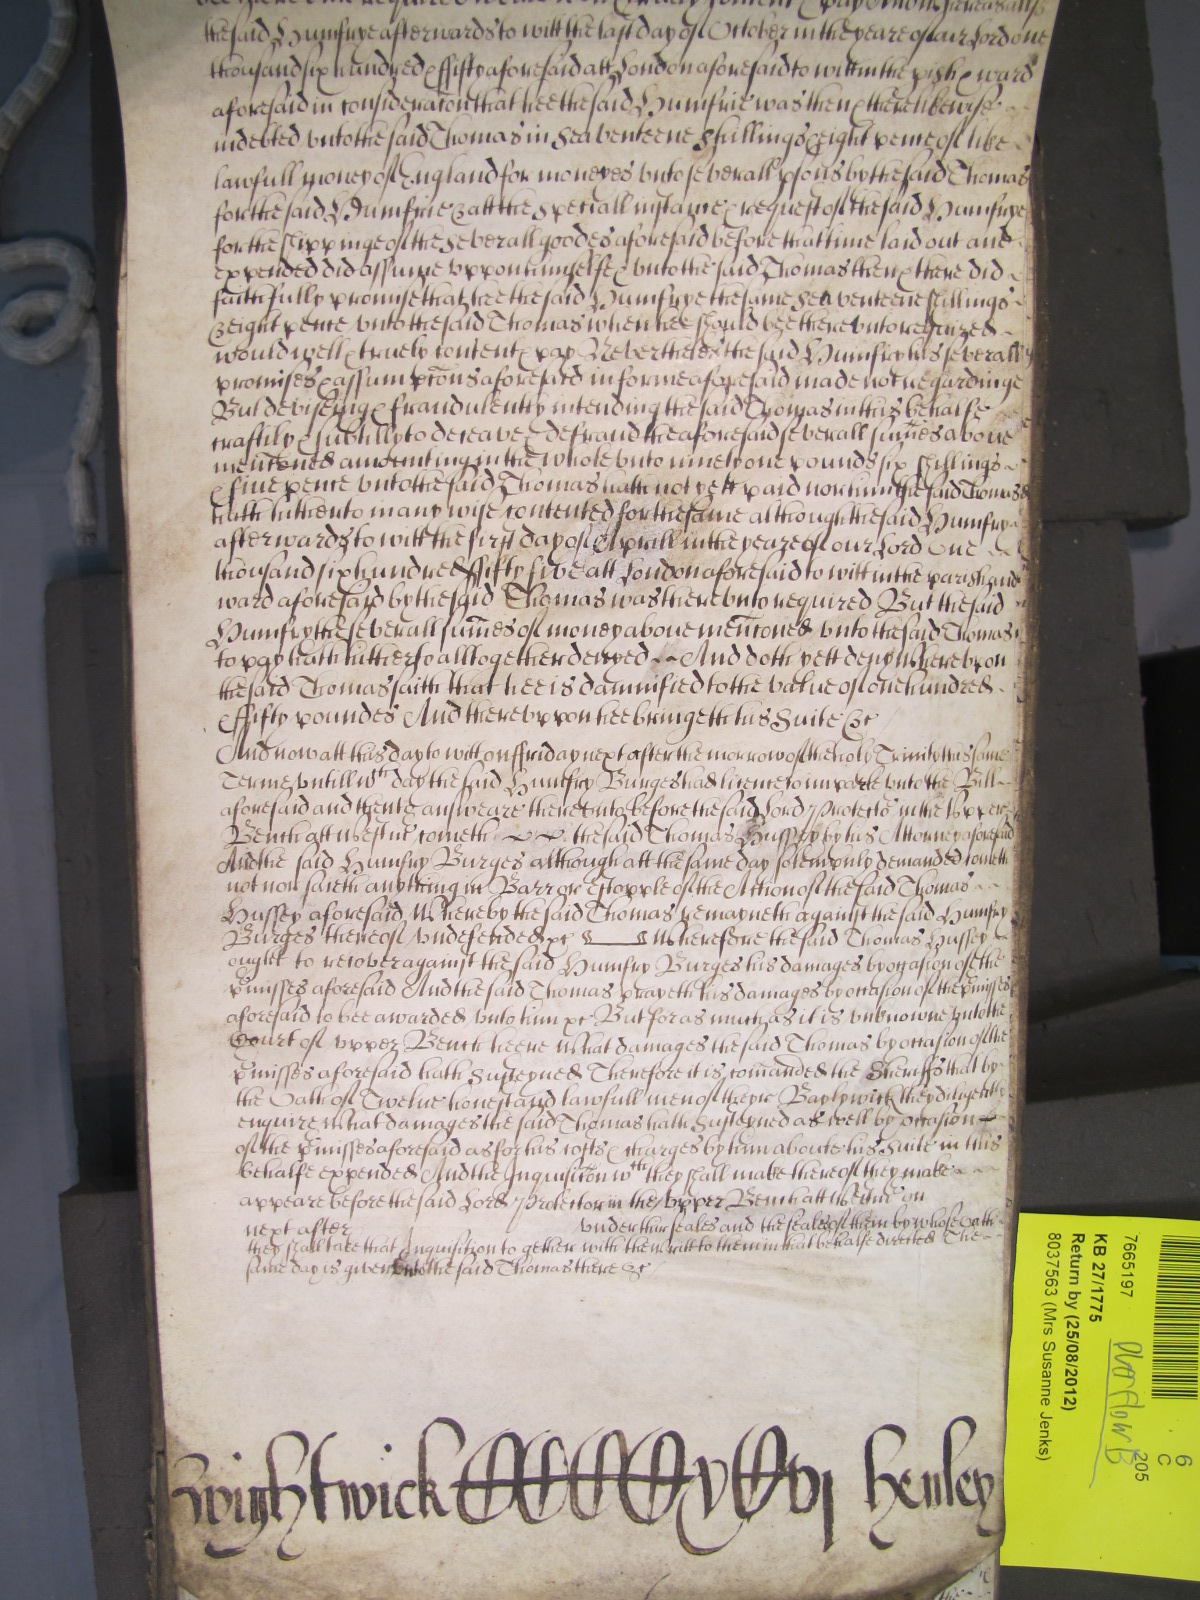 the said Humfrye afterwards to witt the last day of October in the yeare of our Lord one
thousand six hundred & ffifty aforesaid att London aforesaid to witt in the pish & ward
aforesaid in consideracon that hee the said Humfrie was then & there likewise
indebted unto the said Thomas in Seaventeene Shillings & eight pence of like
lawfull money of England for moneyes unto severall psons by the said Thomas
for the said Humfrie & att the speciall instance & request of the said Humfrye
for the shippinge of the severall goodes aforesaid before that time laid out and
expended did assume uppon himselfe & unto the said Thomas then & there did
faithfully promise that hee the said Humfrye the same seaventeene shillings
& eight pence unto the said Thomas when hee should bee thereunto required
would well & truely content & pay Neverthelesse the said Humfry his severall
promises & assumpcons aforesaid in forme aforesaid made not regardinge
But deviseing & fraudulently intending the said Thomas in this behalfe
craftily & subtilly to deceave & defraud the aforesaid severall sumes above
menconed amounting in the whole unto ninety one pounds six shillings
& five pence unto the said Thomas hath not yett paid nor him the said Thomas
hath hitherto in any wise contented for the same although the said Humfry
afterwards to witt the first day of Aprill in the yeare of our Lord One
thousand six hundred ffifty five att London aforesaid to witt in the parish and
ward aforesaid by the said Thomas was thereunto required But the said
Humfry the severall sumes of money above menconed unto the said Thomas
to pay hath hitherto alltogether denyed And doth yett deny Whereupon
the said Thomas saith that hee is damnified to the value of one hundred
& ffifty poundes And thereuppon hee bringeth his Suite &c
And now att this day to witt on ffriday next after the morrow of the holy Trinity this same
Terme untill wch day the said Humfry Burges had licence to imparle unto the Bill
aforesaid and thente answeare thereunto before the said Lord Protector in the Upper
Bench att Westmr cometh the said Thomas Hussey by his Attorney aforesaid
And the said Humfry Burges although att the same day solempnly demanded cometh
not nor saieth anything in Barr or Estopple of the Action of the said Thomas
Hussey aforesaid Whereby the said Thomas remayneth against the said Humfry
Burges thereof undefended &c Wherefore the said Thomas Hussey
ought to recover against the said Humfry Burges his damages by occasion of the
pmisses aforesaid And the said Thomas prayeth his damages by occasion of the pmisses
aforesaid to bee awarded unto him &c But for as much as it is unknowne unto the
Court of upper Bench heere What damages the said Thomas by occasion of the
pmisses aforesaid hath Susteyned Therefore it is comanded the Sheriffs that by
the Oath of Twelve honest and lawfull men of theyr Baylywick they diligently
enquire What damages the said Thomas hath Susteyned as well by occasion
of the pmisses aforesaid as for his costs & charges by him about his Suite in this
behalfe expended And the Inquisicon wch they shall make thereof they make
appeare before the said Lord Protector in the upper Bench att Westmr on
next after under their seales and the seales of them by whose Oath
they shall take that Inquisition to gether with the writt to them in that behalfe directed The
same day is given unto the said Thomas there &c
Wightwick CCCCCvCvj Henley
7665197
KB 27/1775
Return by (25/08/2012)
8037563 (Mrs Susanne Jenks)
Overflow B
205
6
C